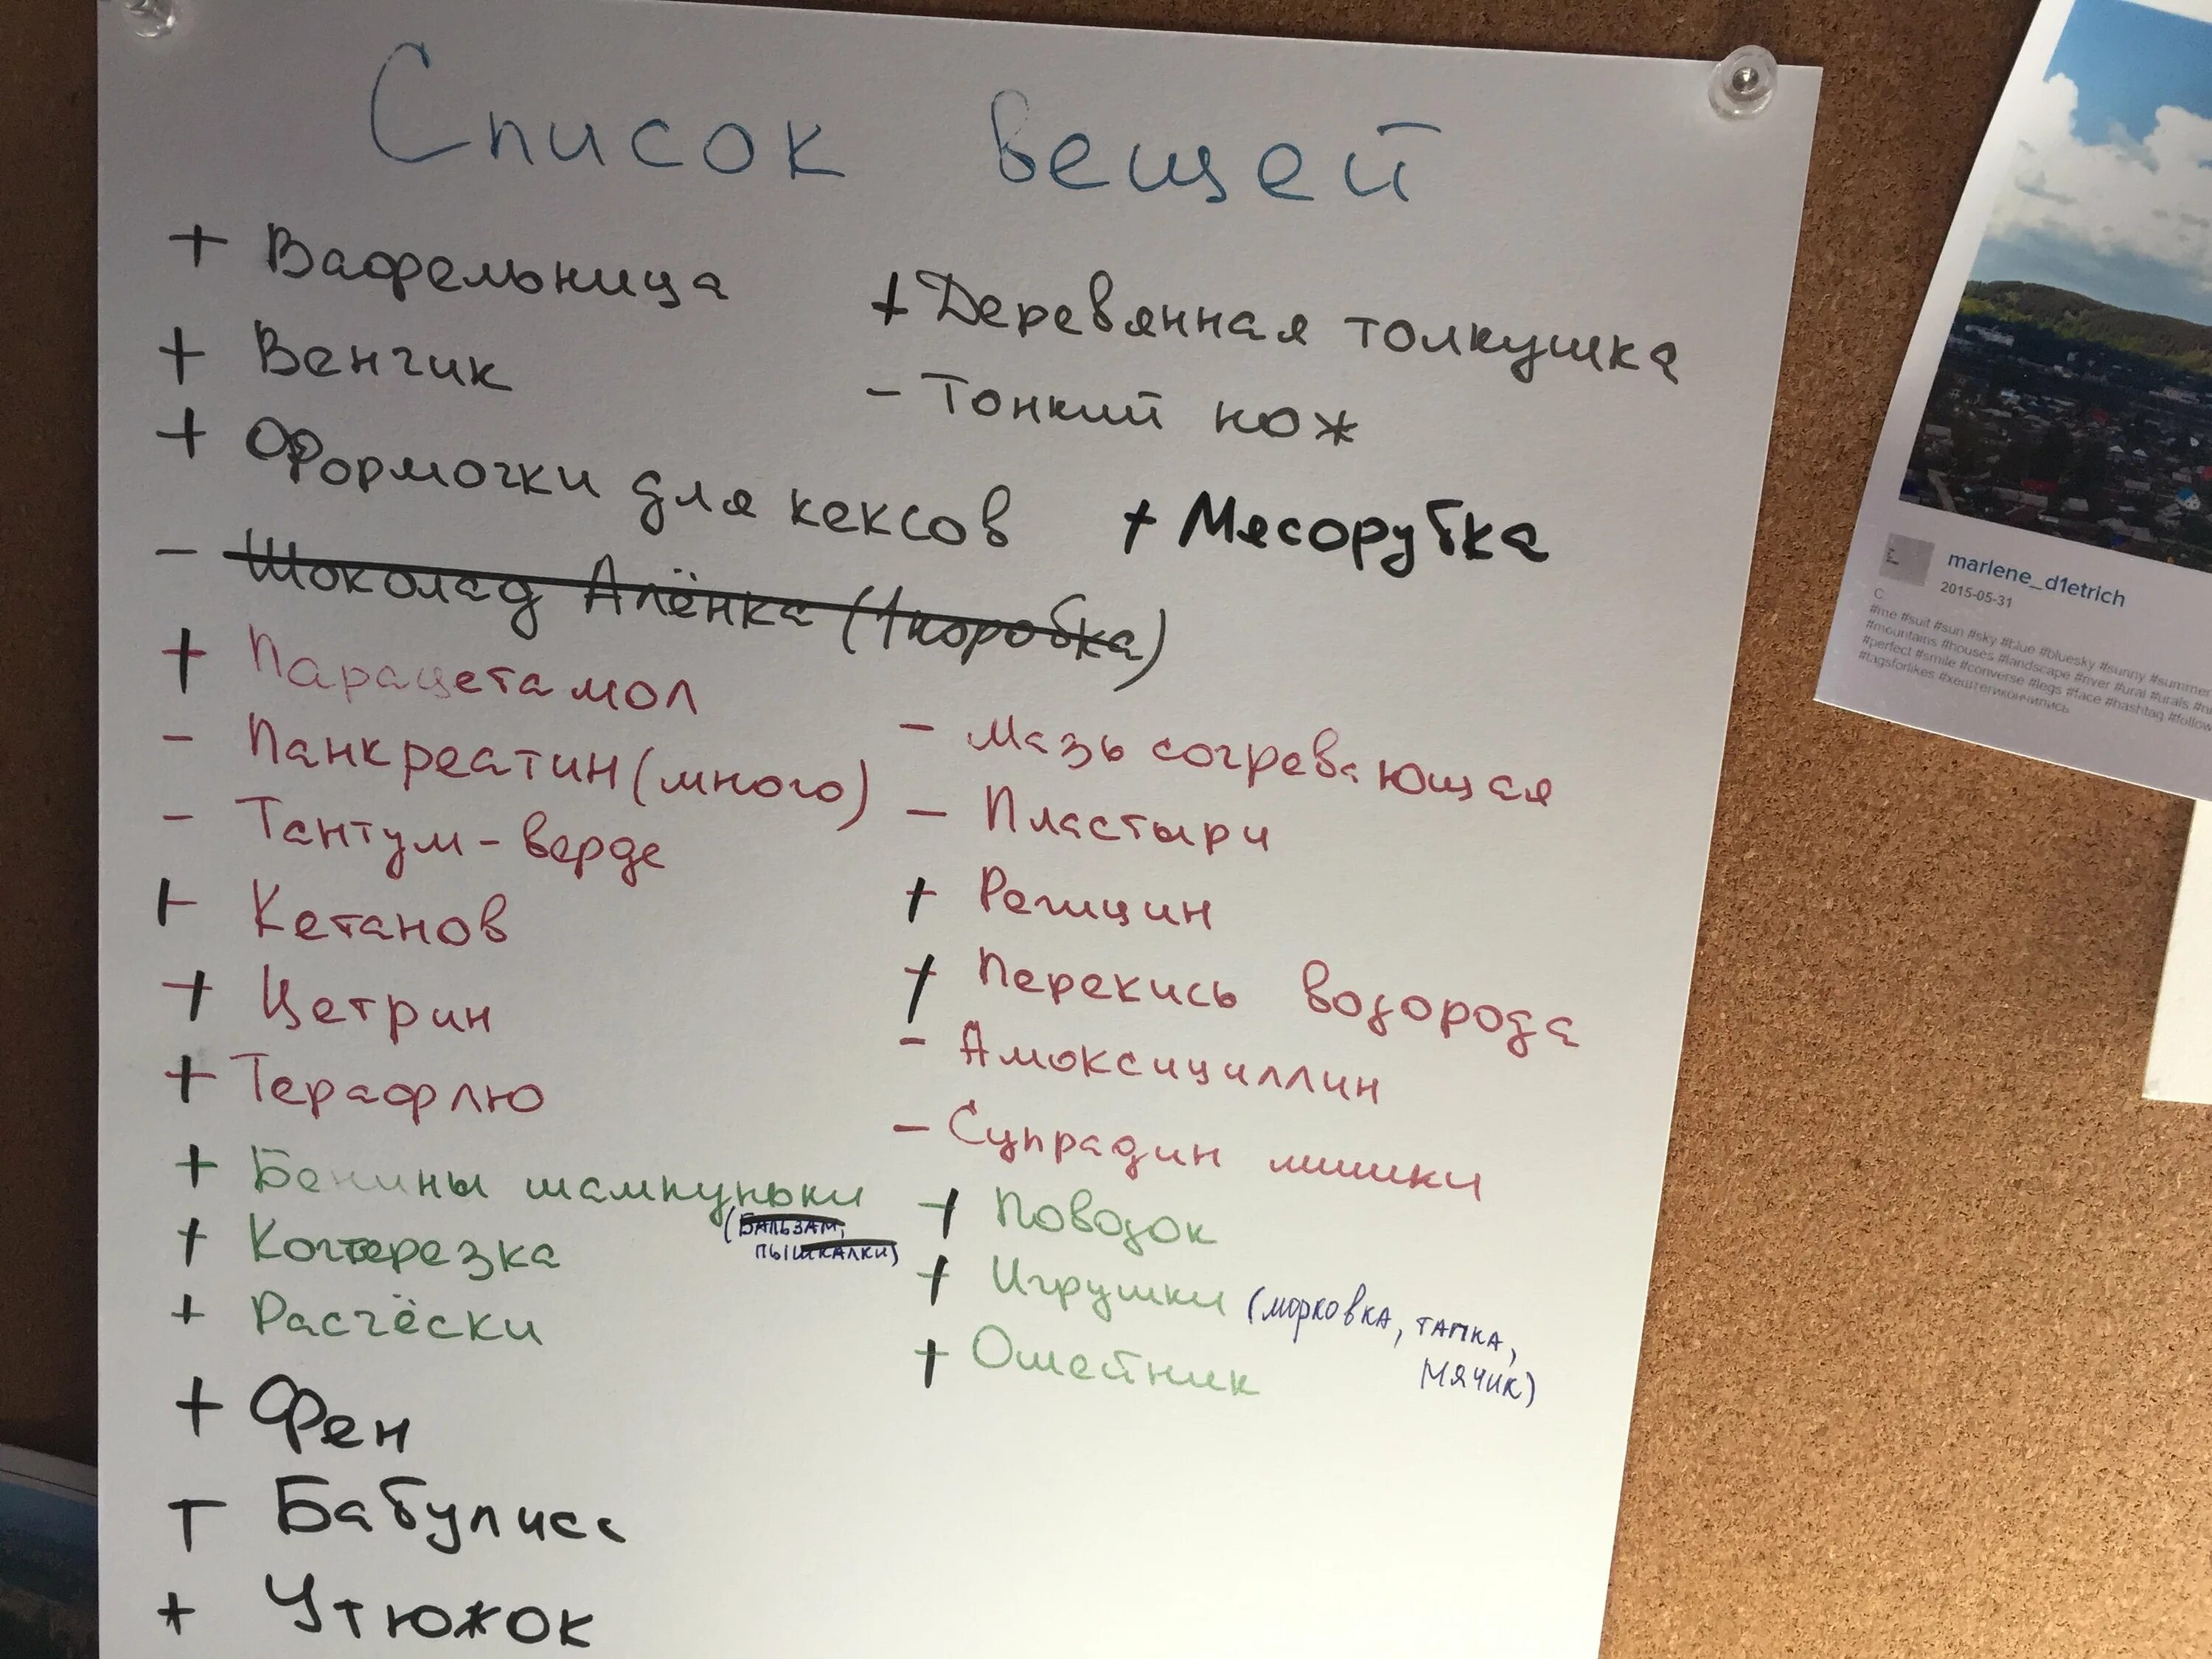 Список вещей
+ Вафельница
+ Венчик
+ Формочки для кексов
- Шоколад Алёнка (1 коробка)
+ Деревянная толкушка
- Тонкий нож
+ Мясорубка
+ Парацетамол
- Панкреатин (много)
- Тантум-верде
+ Кетанов
+ Цетрин
+ Терафлю
- Мазь согревающая
- Пластыри
+ Перекись водорода
- Амоксициллин
- Супрадин мишки
+ Бенины шампуньки
(БАЛЬЗАМ,
ПЫШКАЛКИ)
+ Когтерезка
+ Расчёски
+ Поводок
+ Игрушки (морковка, тапка,
мячик)
+ Ошейник
+ Фен
+ Бабулисс
+ Утюжок
marlene_d1etrich
2015-05-31
#me #suit #sun #sky #blue #bluesky #sunny #summer
#mountains #houses #landscape #river #ural #urals
#perfect #smile #converse #legs #face #hashtag #follow
#tagsforlikes #хештегикончились